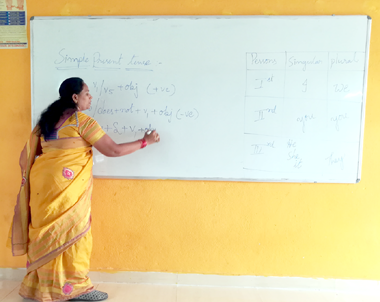 Simple Present tense :-
V1/V5 + obj (+ve)
does + not + V1 + obj (-ve)
+ S + V1 + ob
Person Singular plural
Ist I We
IInd you you
IIIrd He She it